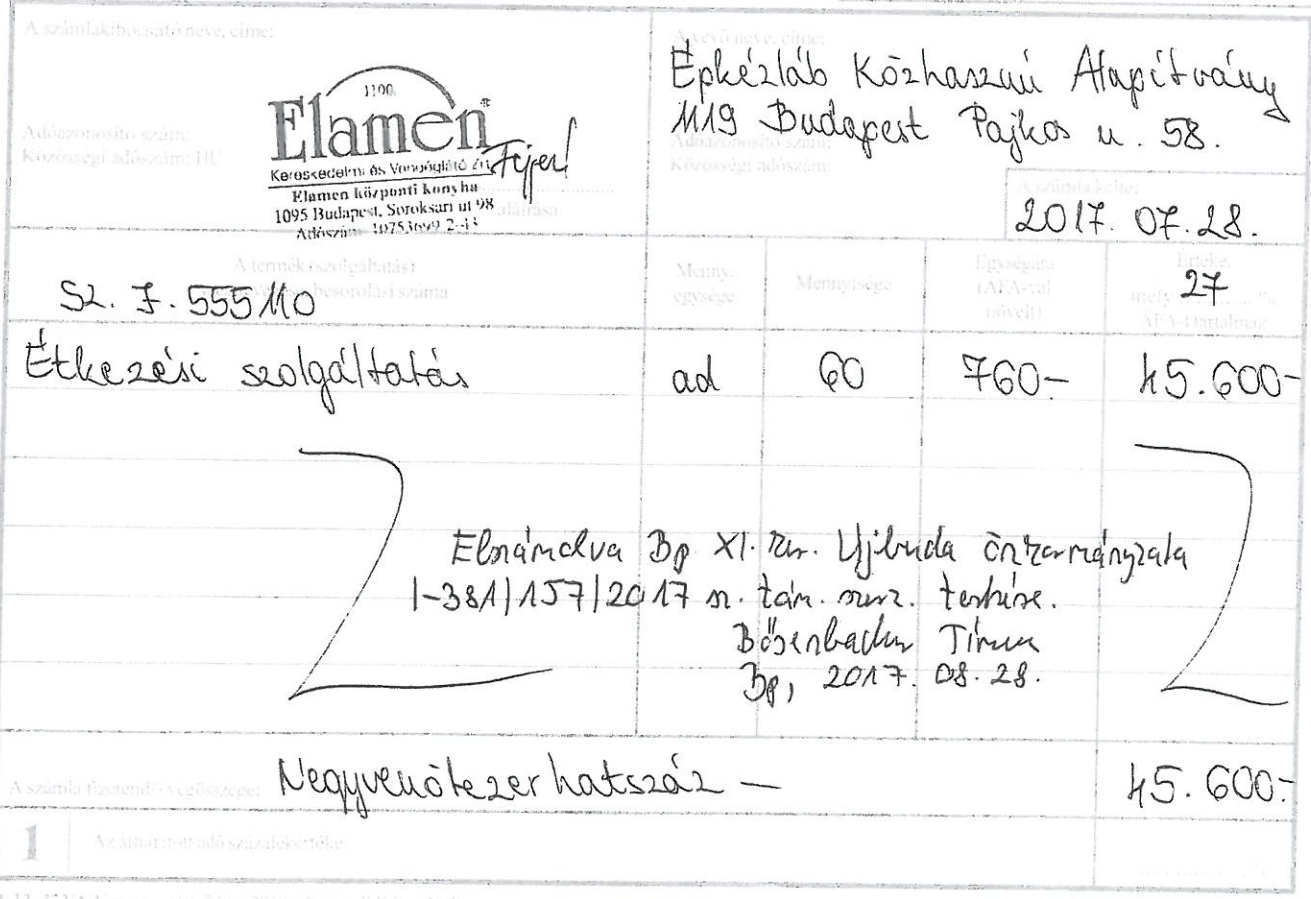 A számlakibocsátó neve, címe:
1100.
Elamen®
Kereskedelmi és Vendéglátó Zrt.
Elamen központi konyha
1095 Budapest, Soroksári út 98
Adószám: 10753699-2-43
Adóazonosító szám:
Közösségi adószám: HU
aláírása
A vevő neve, címe:
Épkézláb Közhasznú Alapítvány
1119 Budapest Pajkos u. 58.
Adóazonosító szám:
Közösségi adószám:
A számla kelte:
2017. 07. 28.
A termék (szolgáltatás)
besorolási száma
SZ. J. 555110
Menny. egysége
Mennyisége
Egységára (ÁFA-val növelt)
Értéke, mely 27 % ÁFA-t tartalmaz
Étkezési szolgáltatás ad 60 760- 45.600-
Elszámolva Bp XI. ker. Újbuda önkormányzata
I-381/157/2017 sz. tám. szerz. terhére.
Bp, 2017. 08. 28.
A számla fizetendő végösszege: Negyvenötezerhatszáz — 45.600.-
1 Az áthárított adó százalékértéke: